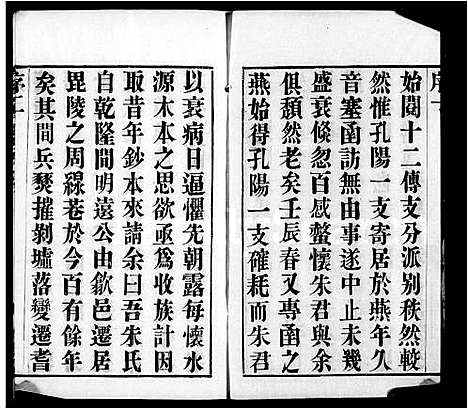 序一
始閱十二傳支分派别秩然較
然惟孔陽一支寄居於燕年久
音塞函訪無由事遂中止未幾
盛衰倐忽百感螫懷朱君與余
俱頽然老矣壬辰春又專函之
燕始得孔陽一支確耗而朱君
以衰病日逼懼先朝露每懷水
源木本之思欲亟為收族計因
取昔年鈔本來請余曰吾朱氏
自乾隆間明遠公由歙邑遷居
毘陵之周線巷於今百有餘年
矣其間兵燹摧剝墟落變遷耆
序二